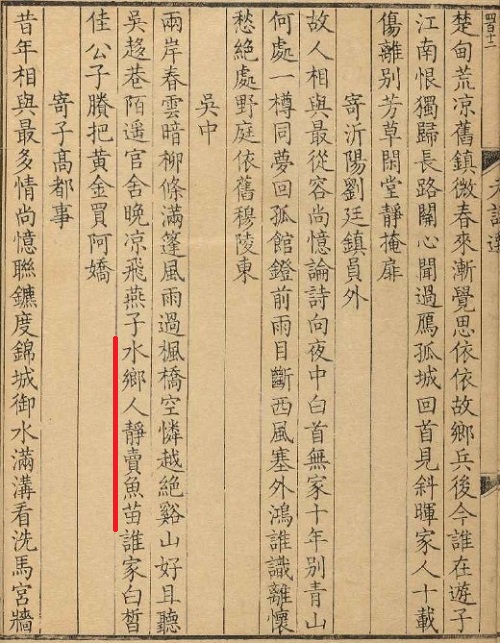 楚甸荒凉舊鎮微春來漸覺思依依故鄉兵後今誰在遊子
江南恨獨歸長路關心聞過鴈孤城回首見斜暉家人十載
傷離别芳草閑堂靜掩扉
寄沂陽劉廷鎮員外
故人相與最從容尚憶論詩向夜中白首無家十年别青山
何處一樽同夢回孤館鐙前雨目斷西風塞外鴻誰識離懷
愁絶處野庭依舊穆陵東
吳中
兩岸春雲暗柳條滿篷風雨過楓橋空憐越絶谿山好且聽
吳趍巷陌遥官舍晚凉飛燕子水鄉人靜賣魚苗誰家白晳
佳公子賸把黄金買阿嬌
寄子髙都事
昔年相與最多情尚憶聯鑣度錦城御水滿溝看洗馬宫牆